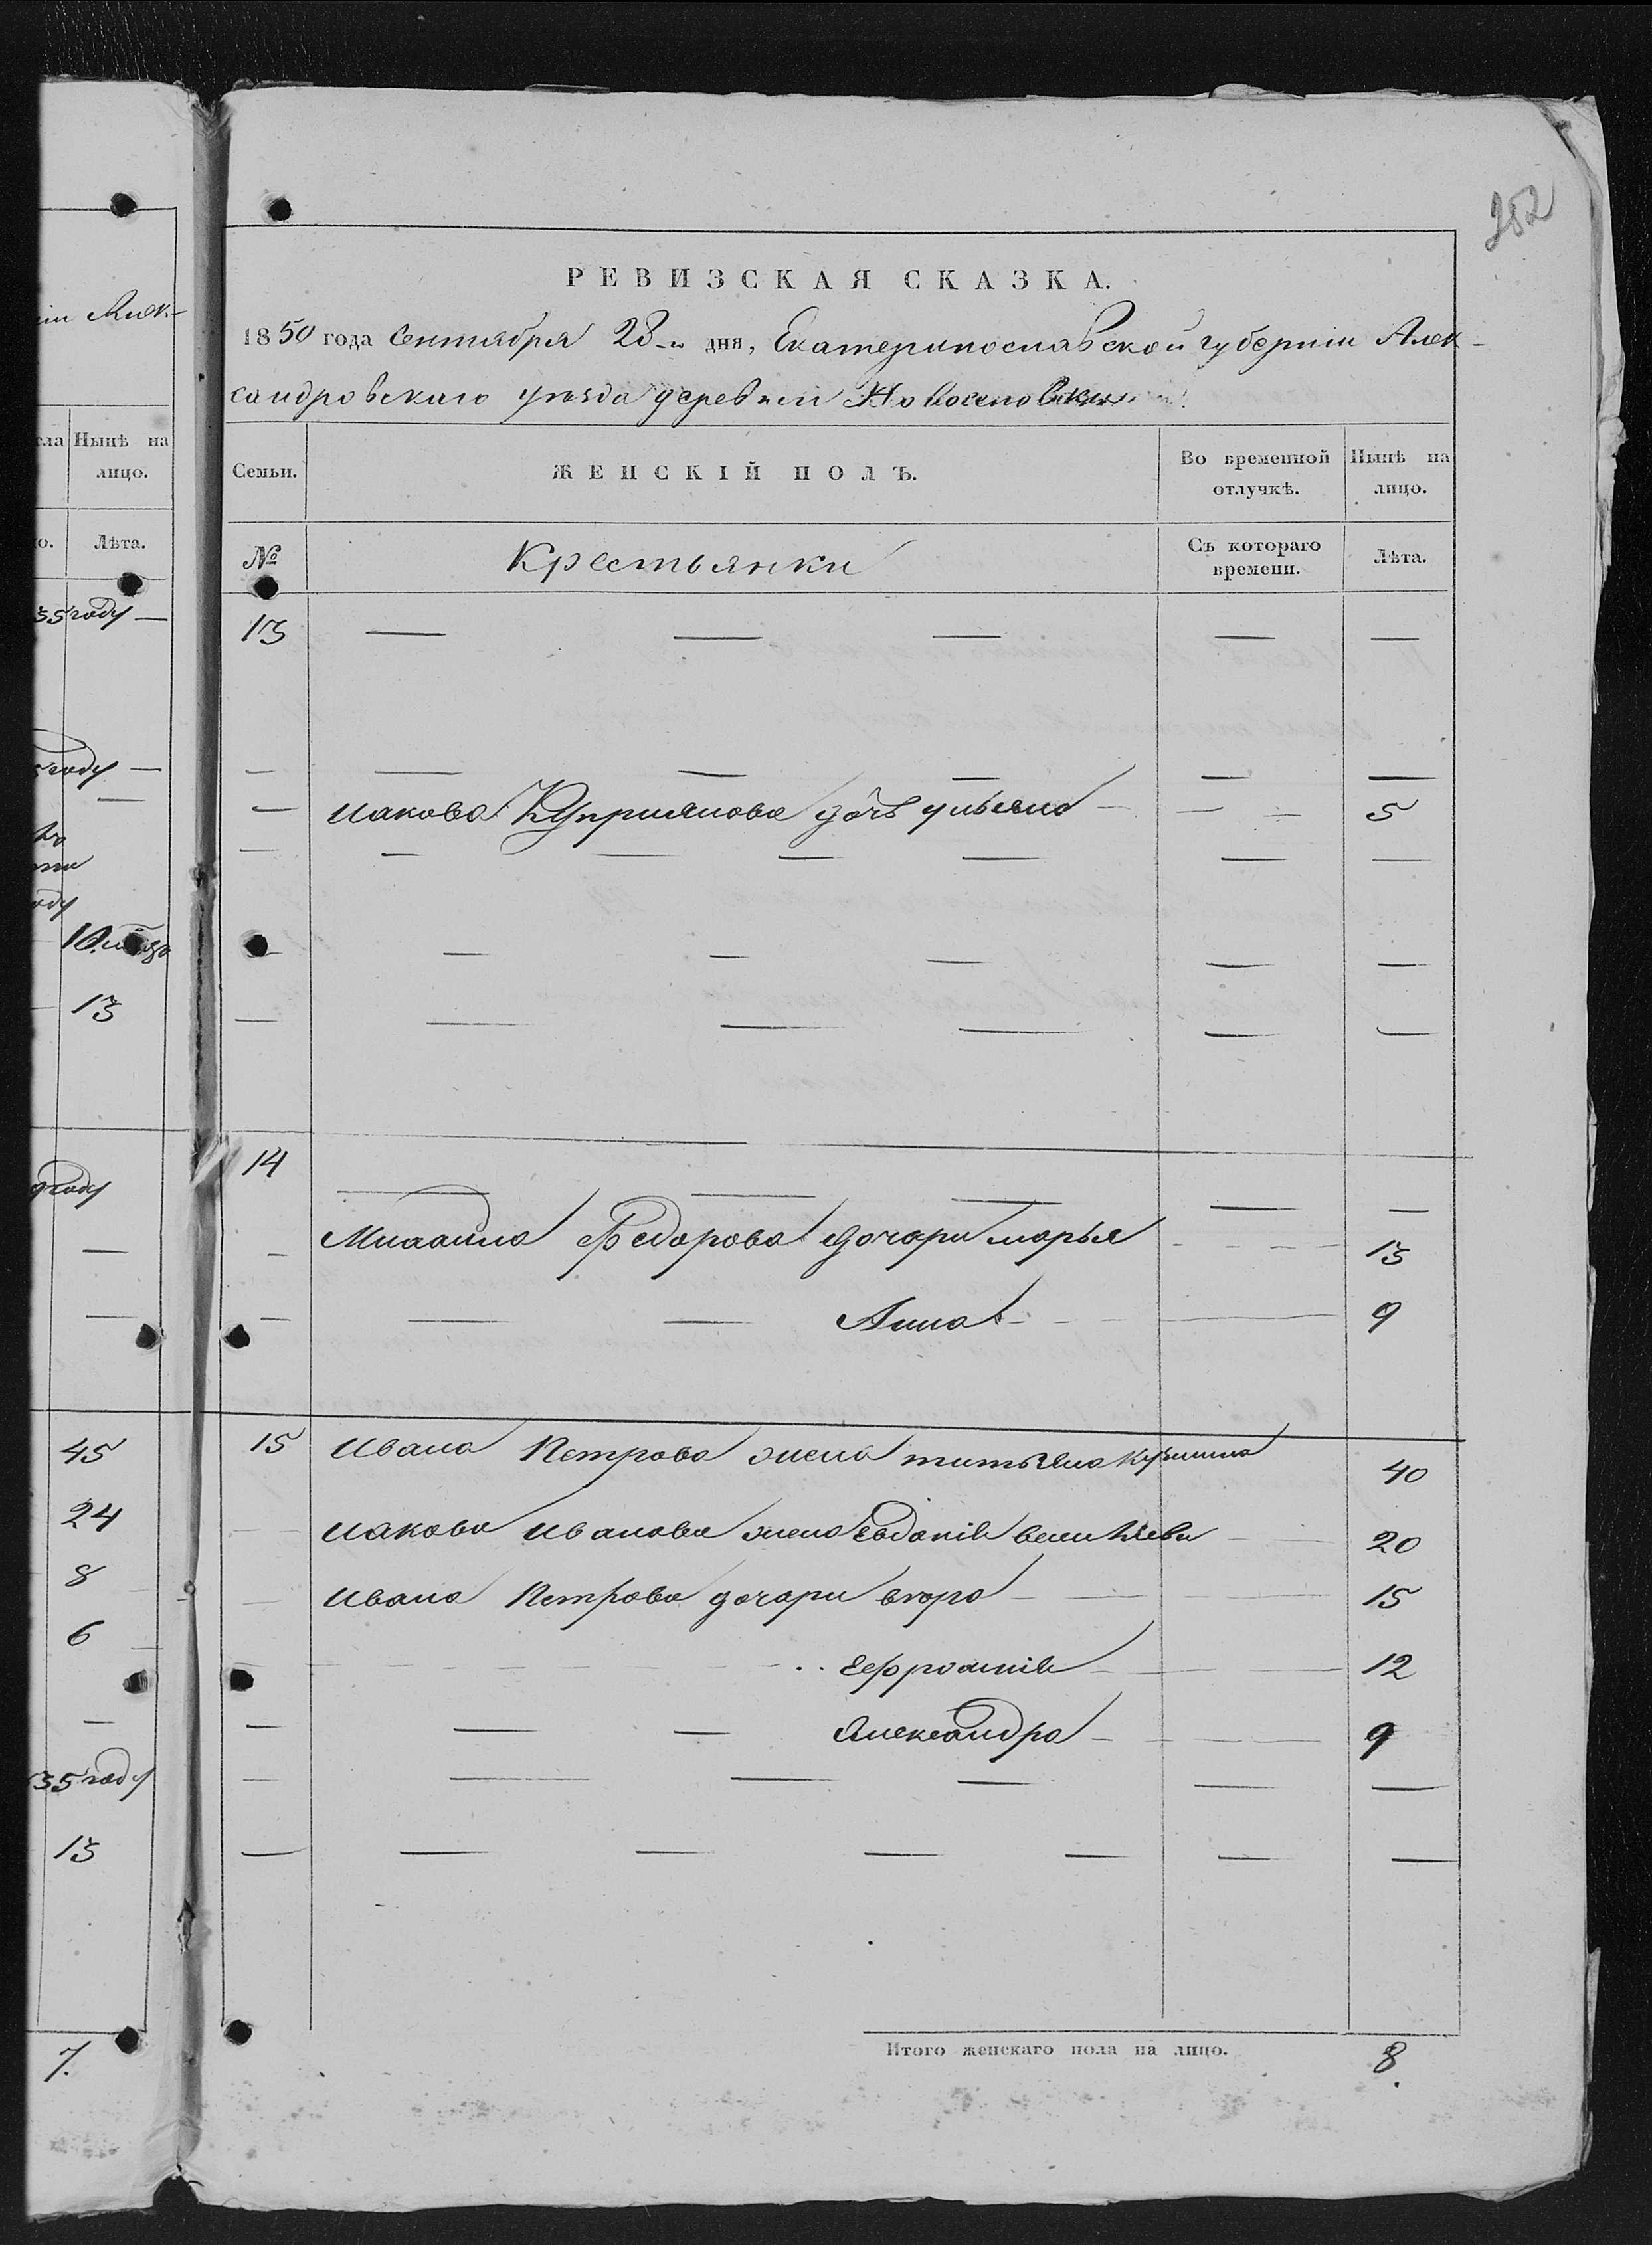 252
РЕВИЗСКАЯ СКАЗКА.
1850 года Сентября 28-го дня, Екатеринославской губерніи Алек-
сандровскаго уѣзда деревни
Семьи. ЖЕНСКІЙ ПОЛЪ. Во временной отлучкѣ. Нынѣ на лицо.
№ Крестьянки Съ котораго времени. Лѣта.
13 — — — — —
— — — — — —
— Иакова Куприянова дочь ульяна — — 5
— — — — — — —
— — — — — —
— — — — — —
14 — — — — —
— Михаила Федорова дочери марья - - - - 13
— — — Анна - - - — 9
15 Ивана Петрова жена татьяна 40
— Иакова Иванова жена Евдокія — 20
— Ивана Петрова дочери — — 15
Ефросинія — — 12
— — — Александра — — 9
— — — — — —
— — — — — — —
Итого женскаго пола на лицо. 8.
іи Алек-
сла Нынѣ на лицо.
о. Лѣта.
35 году —
5 году —
—
оду
10 мѣсяцо
13
9 году
—
—
45
24
8
6
—
35 году
13
7.